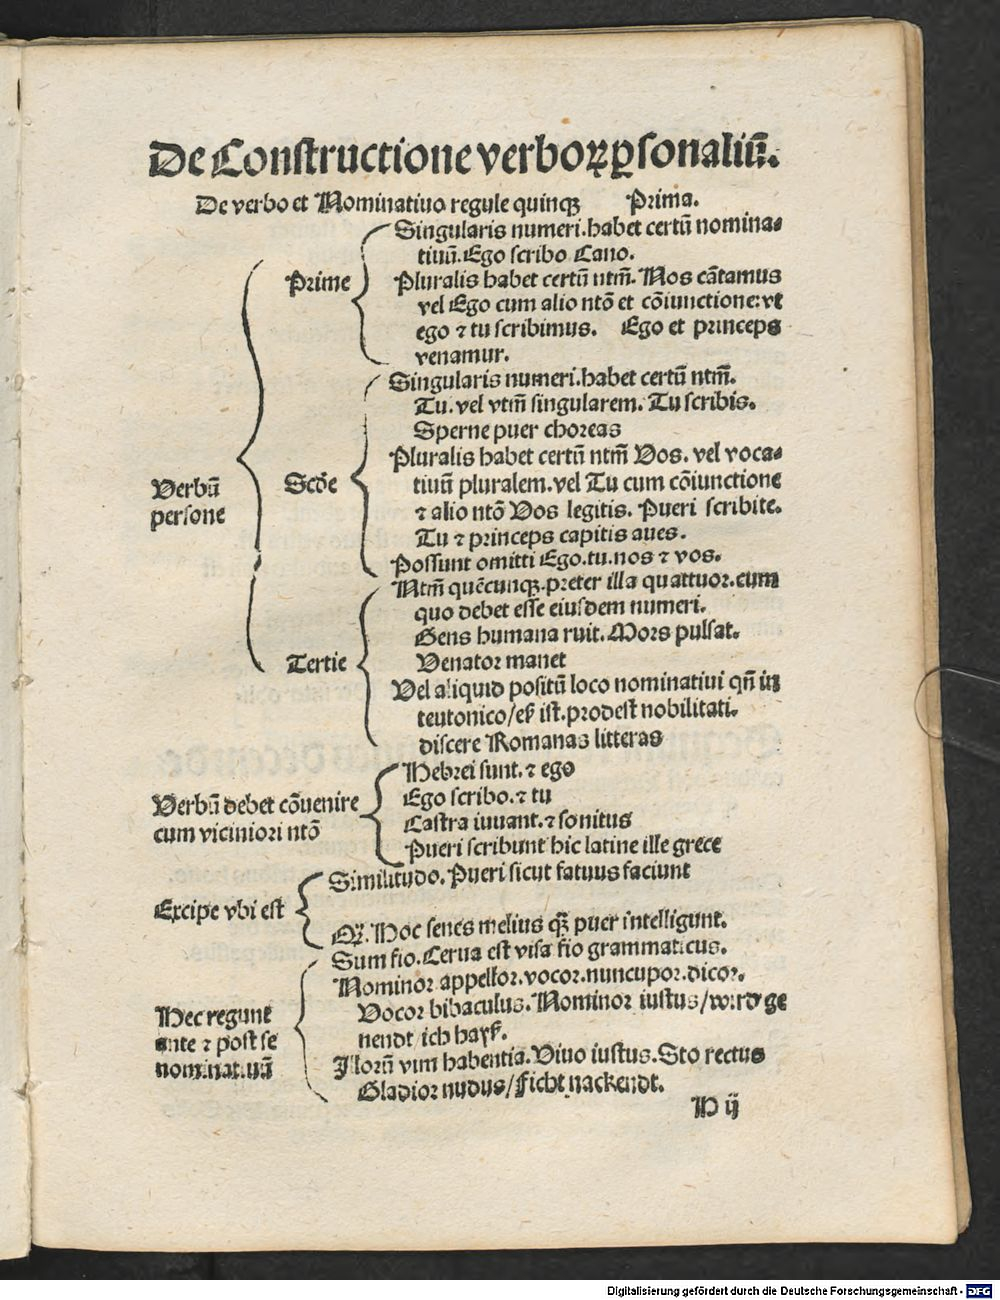 De Constructione verboꝝ ꝑsonaliū.
De verbo et Nominativo regule quinqꝫ Prima.
Verbū
persone
Prime
Singularis numeri. habet certū nomina⸗
tivū. Ego scribo Cano.
Pluralis habet certū ntm̄. Nos cātamus
vel Ego cum alio ntō et cōiunctione: vt
ego ⁊ tu scribimus. Ego et princeps
venamur.
Scd̄e
Singularis numeri. habet certū ntm̄.
Tu. vel vtm̄ singularem. Tu scribis.
Sperne puer choreas
Pluralis habet certū ntm̄ Vos. vel voca⸗
tivū pluralem. vel Tu cum cōiunctione
⁊ alio ntō Vos legitis. Pueri scribite.
Tu ⁊ princeps capitis aues.
Possunt omitti Ego. tu. nos ⁊ vos.
Tertie
Ntm̄ quēcunqꝫ. preter illa quattuor. cum
quo debet esse eiusdem numeri.
Gens humana ruit. Mors pulsat.
Venator manet
Vel aliquid positū loco nominativi qn̄ in
teutonico/es ist. prodest nobilitati.
discere Romanas litteras
Verbū debet cōuenire
cum viciniori ntō
Hebrei sunt. ⁊ ego
Ego scribo. ⁊ tu
Castra iuuant. ⁊ sonitus
Pueri scribunt hic latine ille grece
Excipe vbi est
Similitudo. Pueri sicut fatuus faciunt
Qꝫ. Hoc senes melius qꝫ puer intelligunt.
Hec regunt
ante ⁊ post se
nominatiuū
Sum fio. Cerua est visa fio grammaticus.
Nominor appellor. vocor. nuncupor. dicor.
Vocor bibaculus. Nominor iustus/wird ge
nendt/ich hayß.
Illorū vim habentia. Viuo iustus. Sto rectus
Gladior nudus/ficht nackendt.
H ij
Digitalisierung gefördert durch die Deutsche Forschungsgemeinschaft - DFG